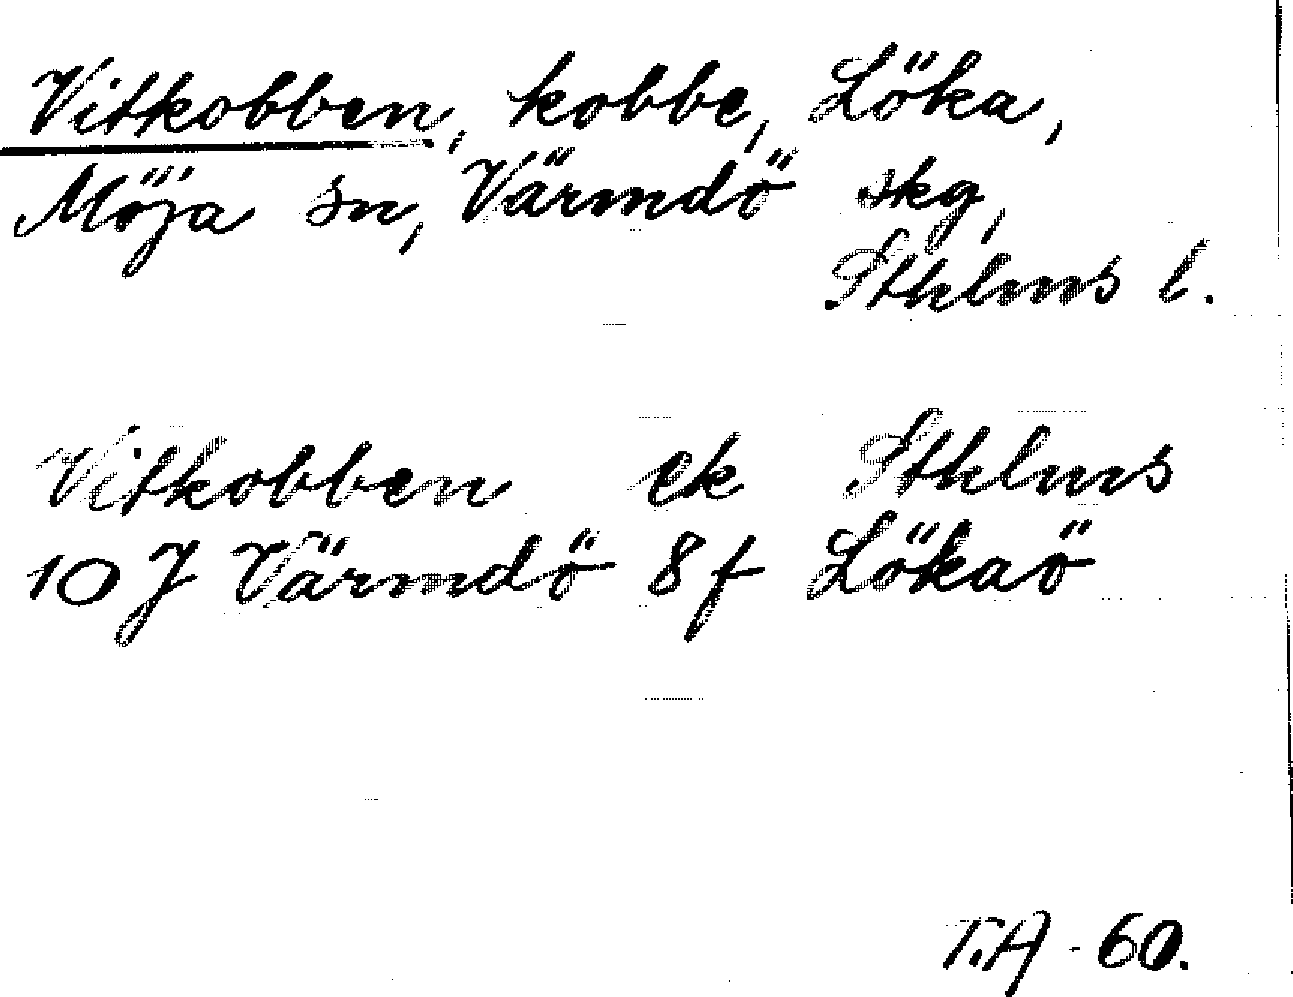 Vitkobben, kobbe, Löka,
Möja sn, Värmdö skg,
Sthlms l.
Vitkobben ek Sthlms
10 J Värmdö 8 f Lökaö
T.A - 60.